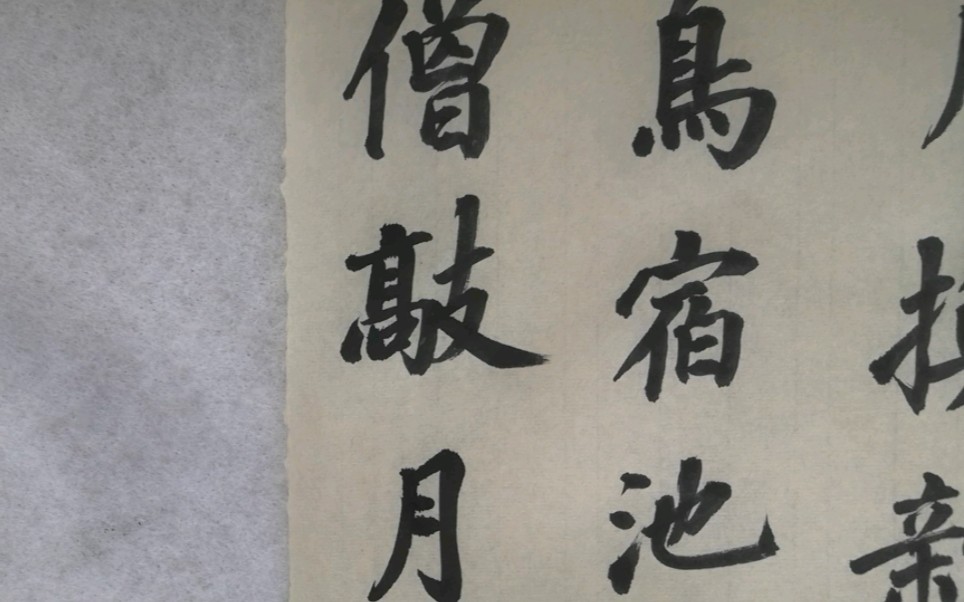 新
鳥宿池
僧敲月